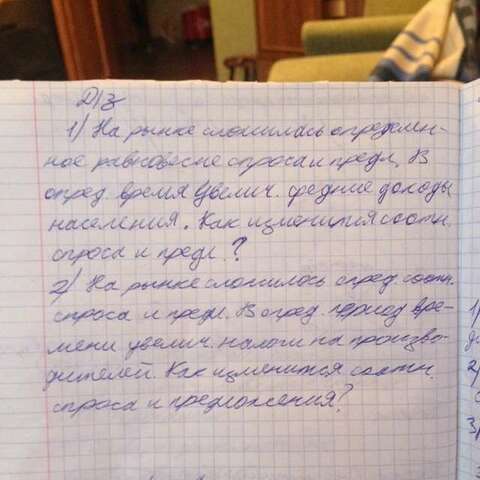 Д/з
1) На рынке сложилась определен-
ное равновесие спроса и предл. В
опред. время увелич. средние доходы
населения. Как изменится соотн.
спроса и предл.?
2) На рынке сложилось опред. соотн.
спроса и предл. В опред. период вре-
мени увелич. налоги на произво-
дителей. Как изменится соотн.
спроса и предложения?
1)
2)
3)